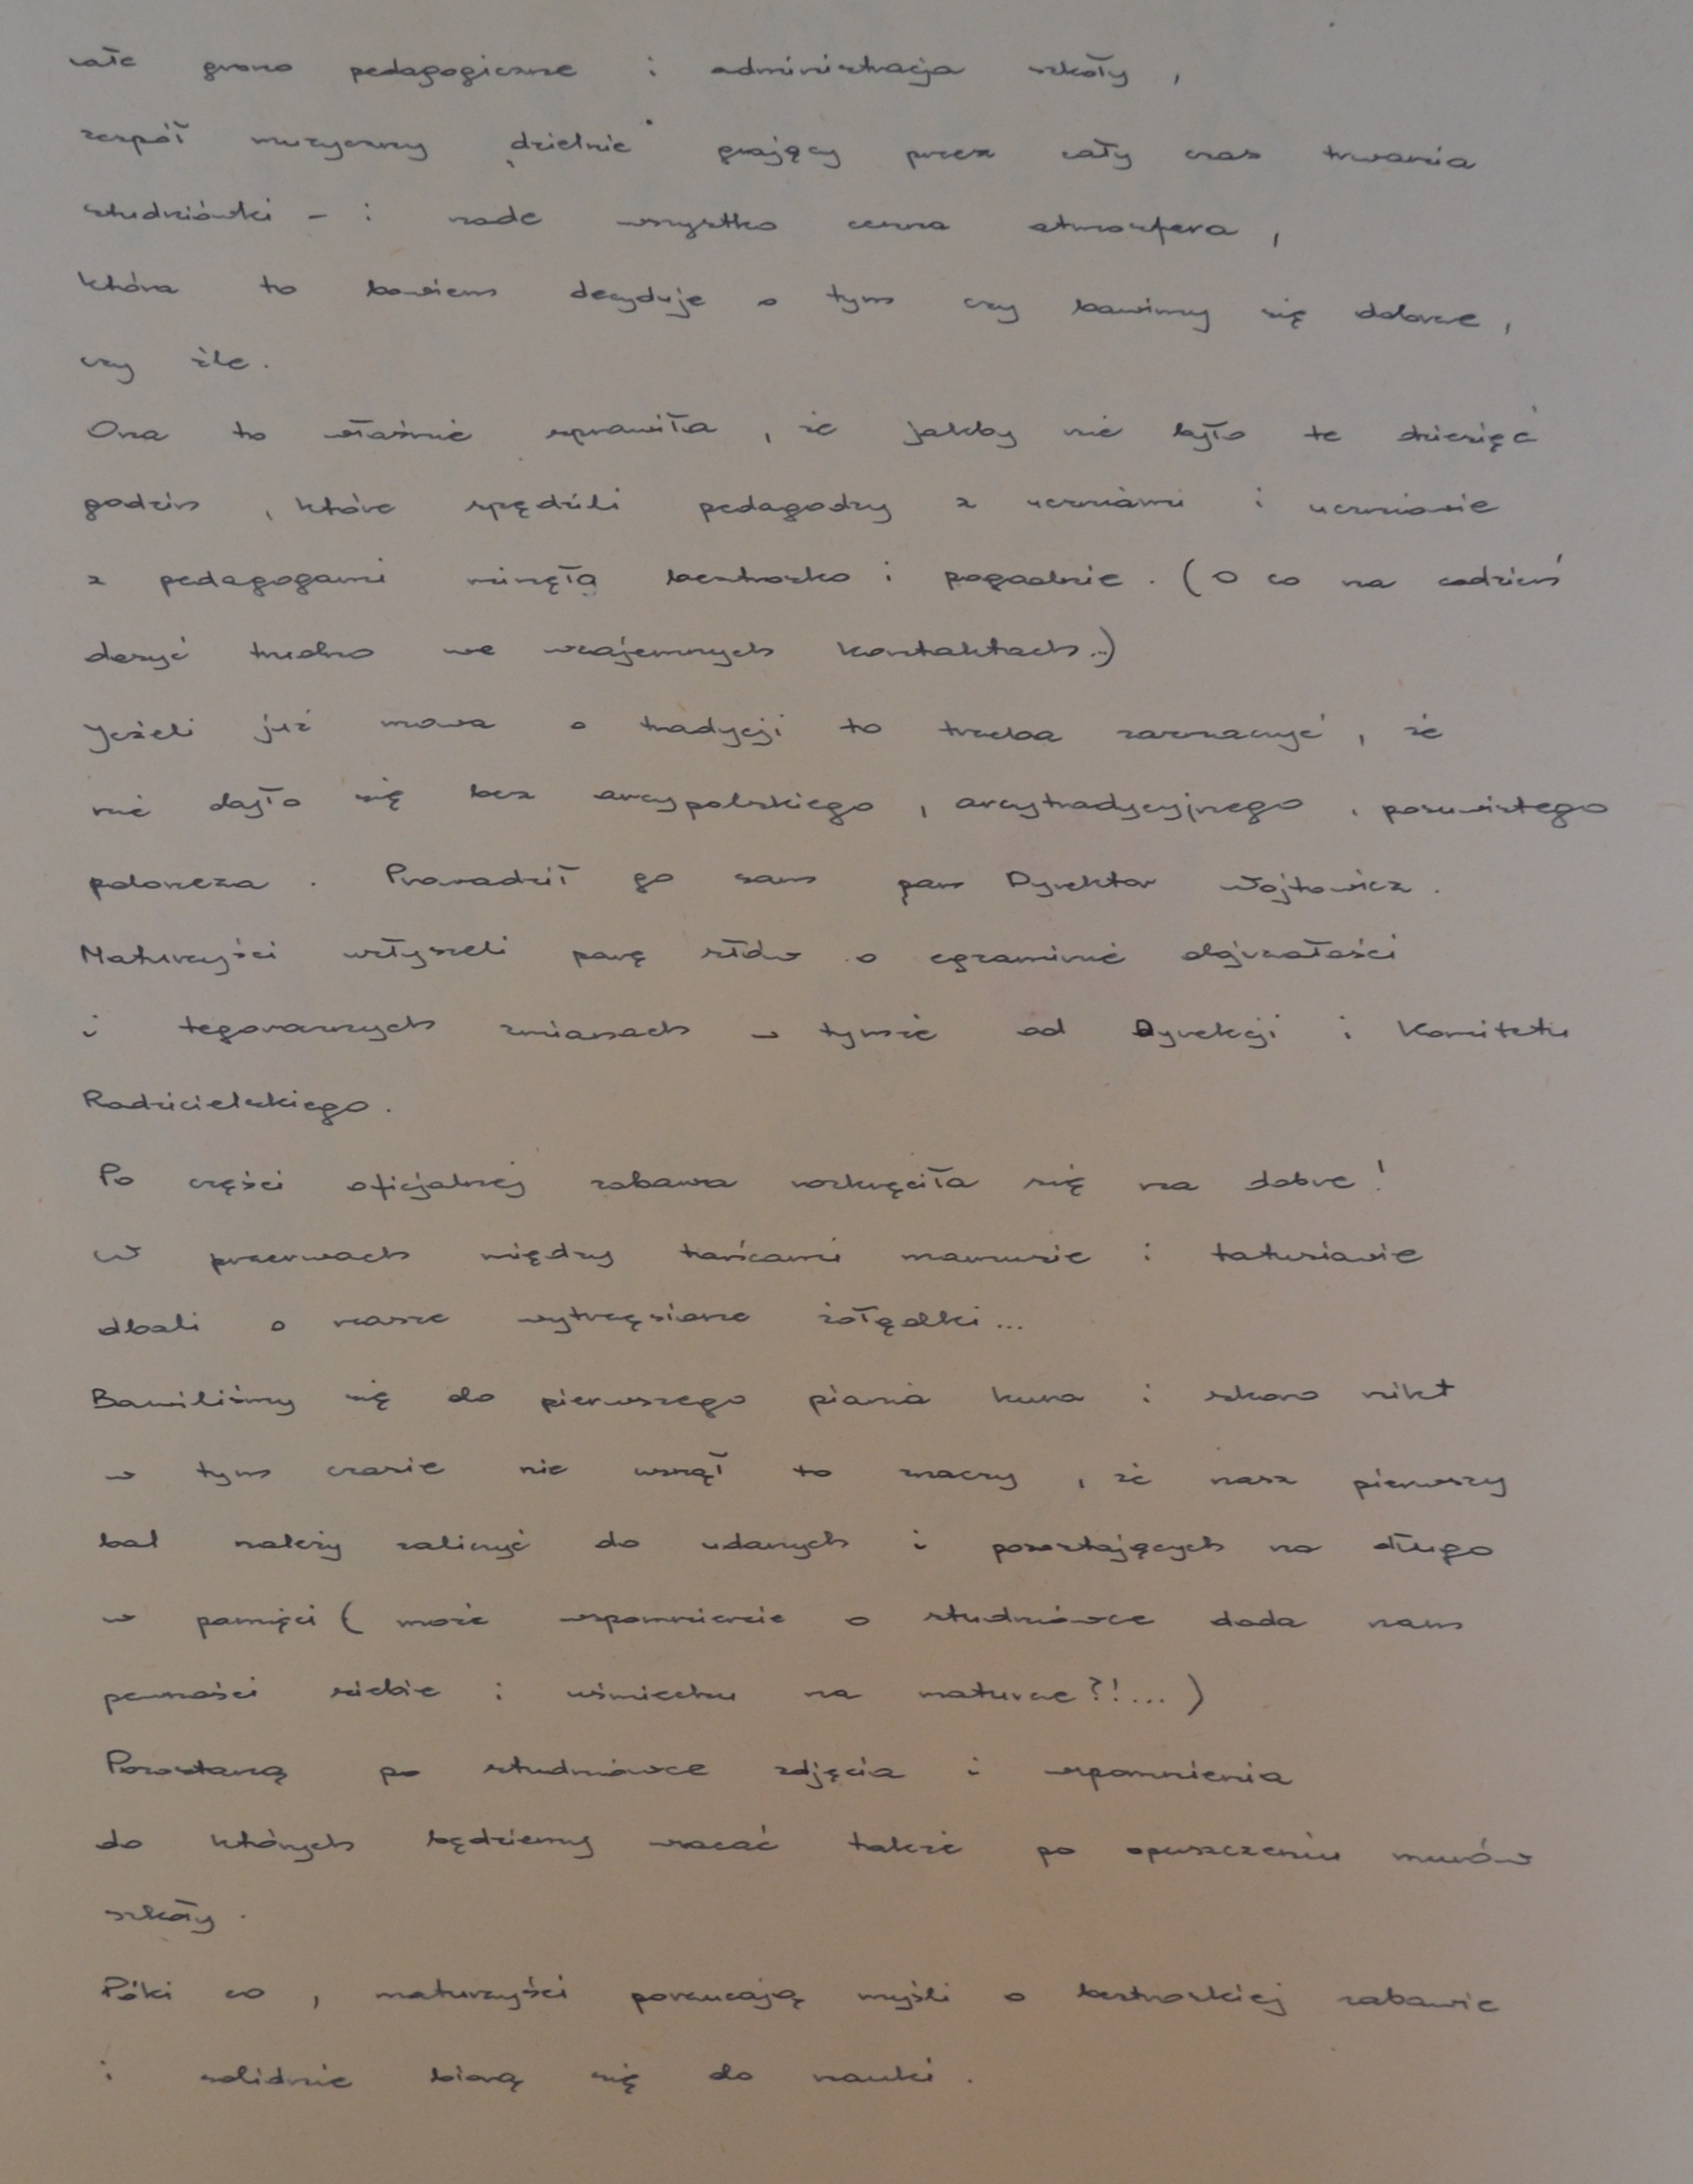 całe grono pedagogiczne i administracja szkoły,
zespół muzyczny „dzielnie" grający przez cały czas trwania
studniówki - i nade wszystko cenna atmosfera,
która to bowiem decyduje o tym czy bawimy się dobrze,
czy źle.
Ona to właśnie sprawiła, że jakby nie było te dziesięć
godzin, które spędzili pedagodzy z uczniami i uczniowie
z pedagogami minęła beztrosko i pogodnie. (O co na codzień
dosyć trudno we wzajemnych kontaktach..)
Jeżeli już mowa o tradycji to trzeba zaznaczyć, że
nie obyło się bez arcypolskiego, arcytradycyjnego, posuwistego
poloneza. Prowadził go sam pan Dyrektor Wojtowicz.
Maturzyści usłyszeli parę słów o egzaminie dojrzałości
i tegorocznych zmianach w tymże od Dyrekcji i Komitetu
Rodzicielskiego.
Po części oficjalnej zabawa rozkręciła się na dobre!
W przerwach między tańcami mamusie i tatusiowie
dbali o nasze wytrzęsione żołądki...
Bawiliśmy się do pierwszego piania kura i skoro nikt
w tym czasie nie usnął to znaczy, że nasz pierwszy
bal należy zaliczyć do udanych i pozostających na długo
w pamięci (może wspomnienie o studniówce doda nam
pewności siebie i uśmiechu na maturze?!...)
Pozostaną po studniówce zdjęcia i wspomnienia
do których będziemy wracać także po opuszczeniu murów
szkoły.
Póki co, maturzyści porzucają myśli o beztroskiej zabawie
i solidnie biorą się do nauki.